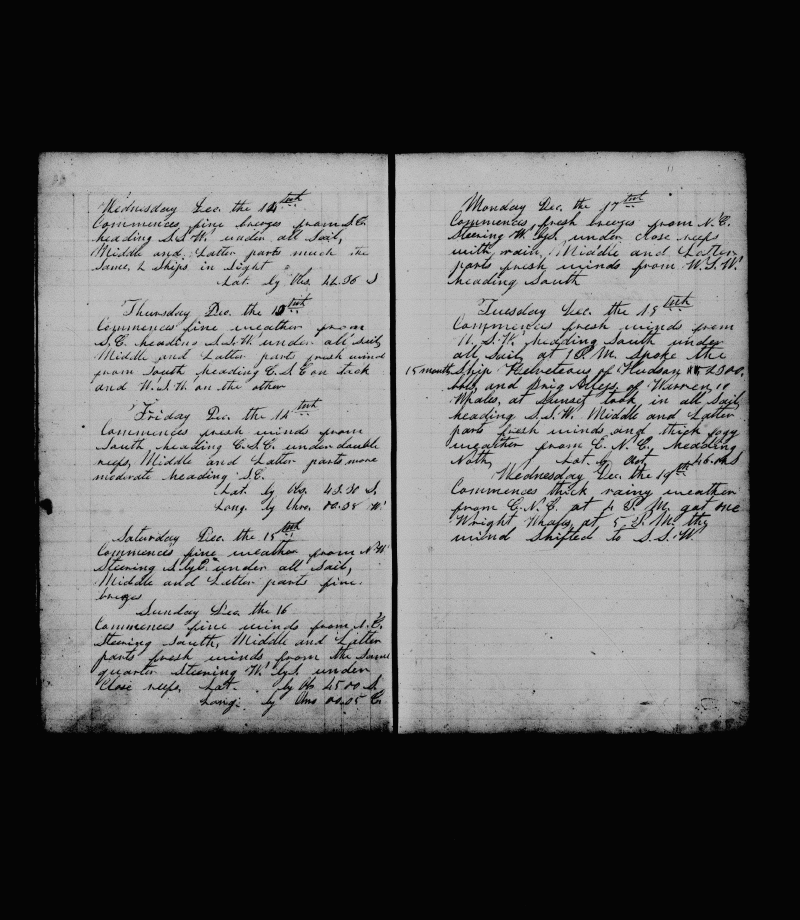 Wednesday Dec. the 12 teeth
Commences fine breezes from S.E.
heading S.S.W. under all Sail,
Middle and Latter parts much the
Same, 2 Ships in Sight
Lat. by Obs. 42.36 S
Thursday Dec. the 13 teeth
Commences fine weather from
S.E. heading S.S.W. under all Sail
Middle and Latter parts fresh wind
from South heading E.S.E on tick
and W.S.W. on the other
Friday Dec. the 14 teeth
Commences fresh winds from
South heading E.S.E. under double
reefs, Middle and Latter parts more
moderate heading S.E.
Lat. by Obs. 43.30 S.
Long. by Chro. 00.38 W.
Saturday Dec. the 15 teeth
Commences fine weather from N.W.
Steering S. by E. under all Sail,
Middle and Latter parts fine
breezes
Sunday Dec. the 16
Commences fine winds from N.E.
Steering South, Middle and Latter
parts fresh winds from the Same
quarter Steering W. by S. under
Close reefs, Lat. by Ob 45.00 S.
Long. by Chro 00.05 E.
Monday Dec. the 17 teeth
Commences fresh breezes from N.E.
Steering W. by S. under close reefs
with rain, Middle and Latter
parts fresh winds from W.S.W.
heading South
Tuesday Dec. the 18 teeth
Commences fresh winds from
W.S.W. heading South under
all Sail, at 1 P.M. Spoke the
15 month Ship Helveteous of Hudson 2300.
and Brig of Warren 19
Whales, at Sunset took in all Sail
heading S.S.W. Middle and Latter
parts fresh winds and thick fogy
weather from E.N.E. heading
Noth, Lat. by Obs. S
Wednesday Dec. the 19th
Commences thick rainy weather
from E.N.E. at 4 P.M. got one
Wright Whale, at 5 P.M. the
wind Shifted to S.S.W.